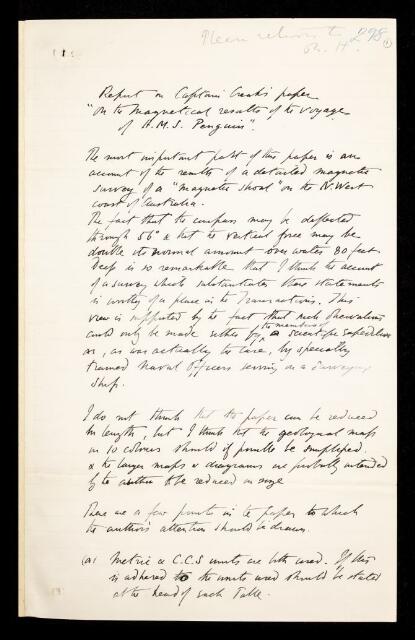 Please return to
Dr. H.
298
Report on Captain Creak's paper
"On the magnetical results of the voyage
of H.M.S. Penguin".
The most important part of this paper is an
account of the results of a detailed magnetic
survey of a "magnetic shoal" on the N. West
coast of Australia.
The fact that the compass may be deflected
through 56° & that the vertical force may be
double its normal amount over water 80 feet
deep is so remarkable that I think the account
of a survey which substantiates these statements
is worthy of a place in the Transactions. This
view is supported by the fact that such observations
could only be made either by the members of a scientific expedition
or, as was actually the case, by specially
trained Naval Officers serving on a surveying
ship.
I do not think that the paper can be reduced
in length, but I think that the geological map
in 10 colours should if possible be simplified
& the larger maps & diagrams are probably intended
by the author to be reduced in size
There are a few points in the paper to which
the author's attention should be drawn.
(a) Metric & C.G.S units are both used. If this
is adhered to the units used should be stated
at the head of each Table.